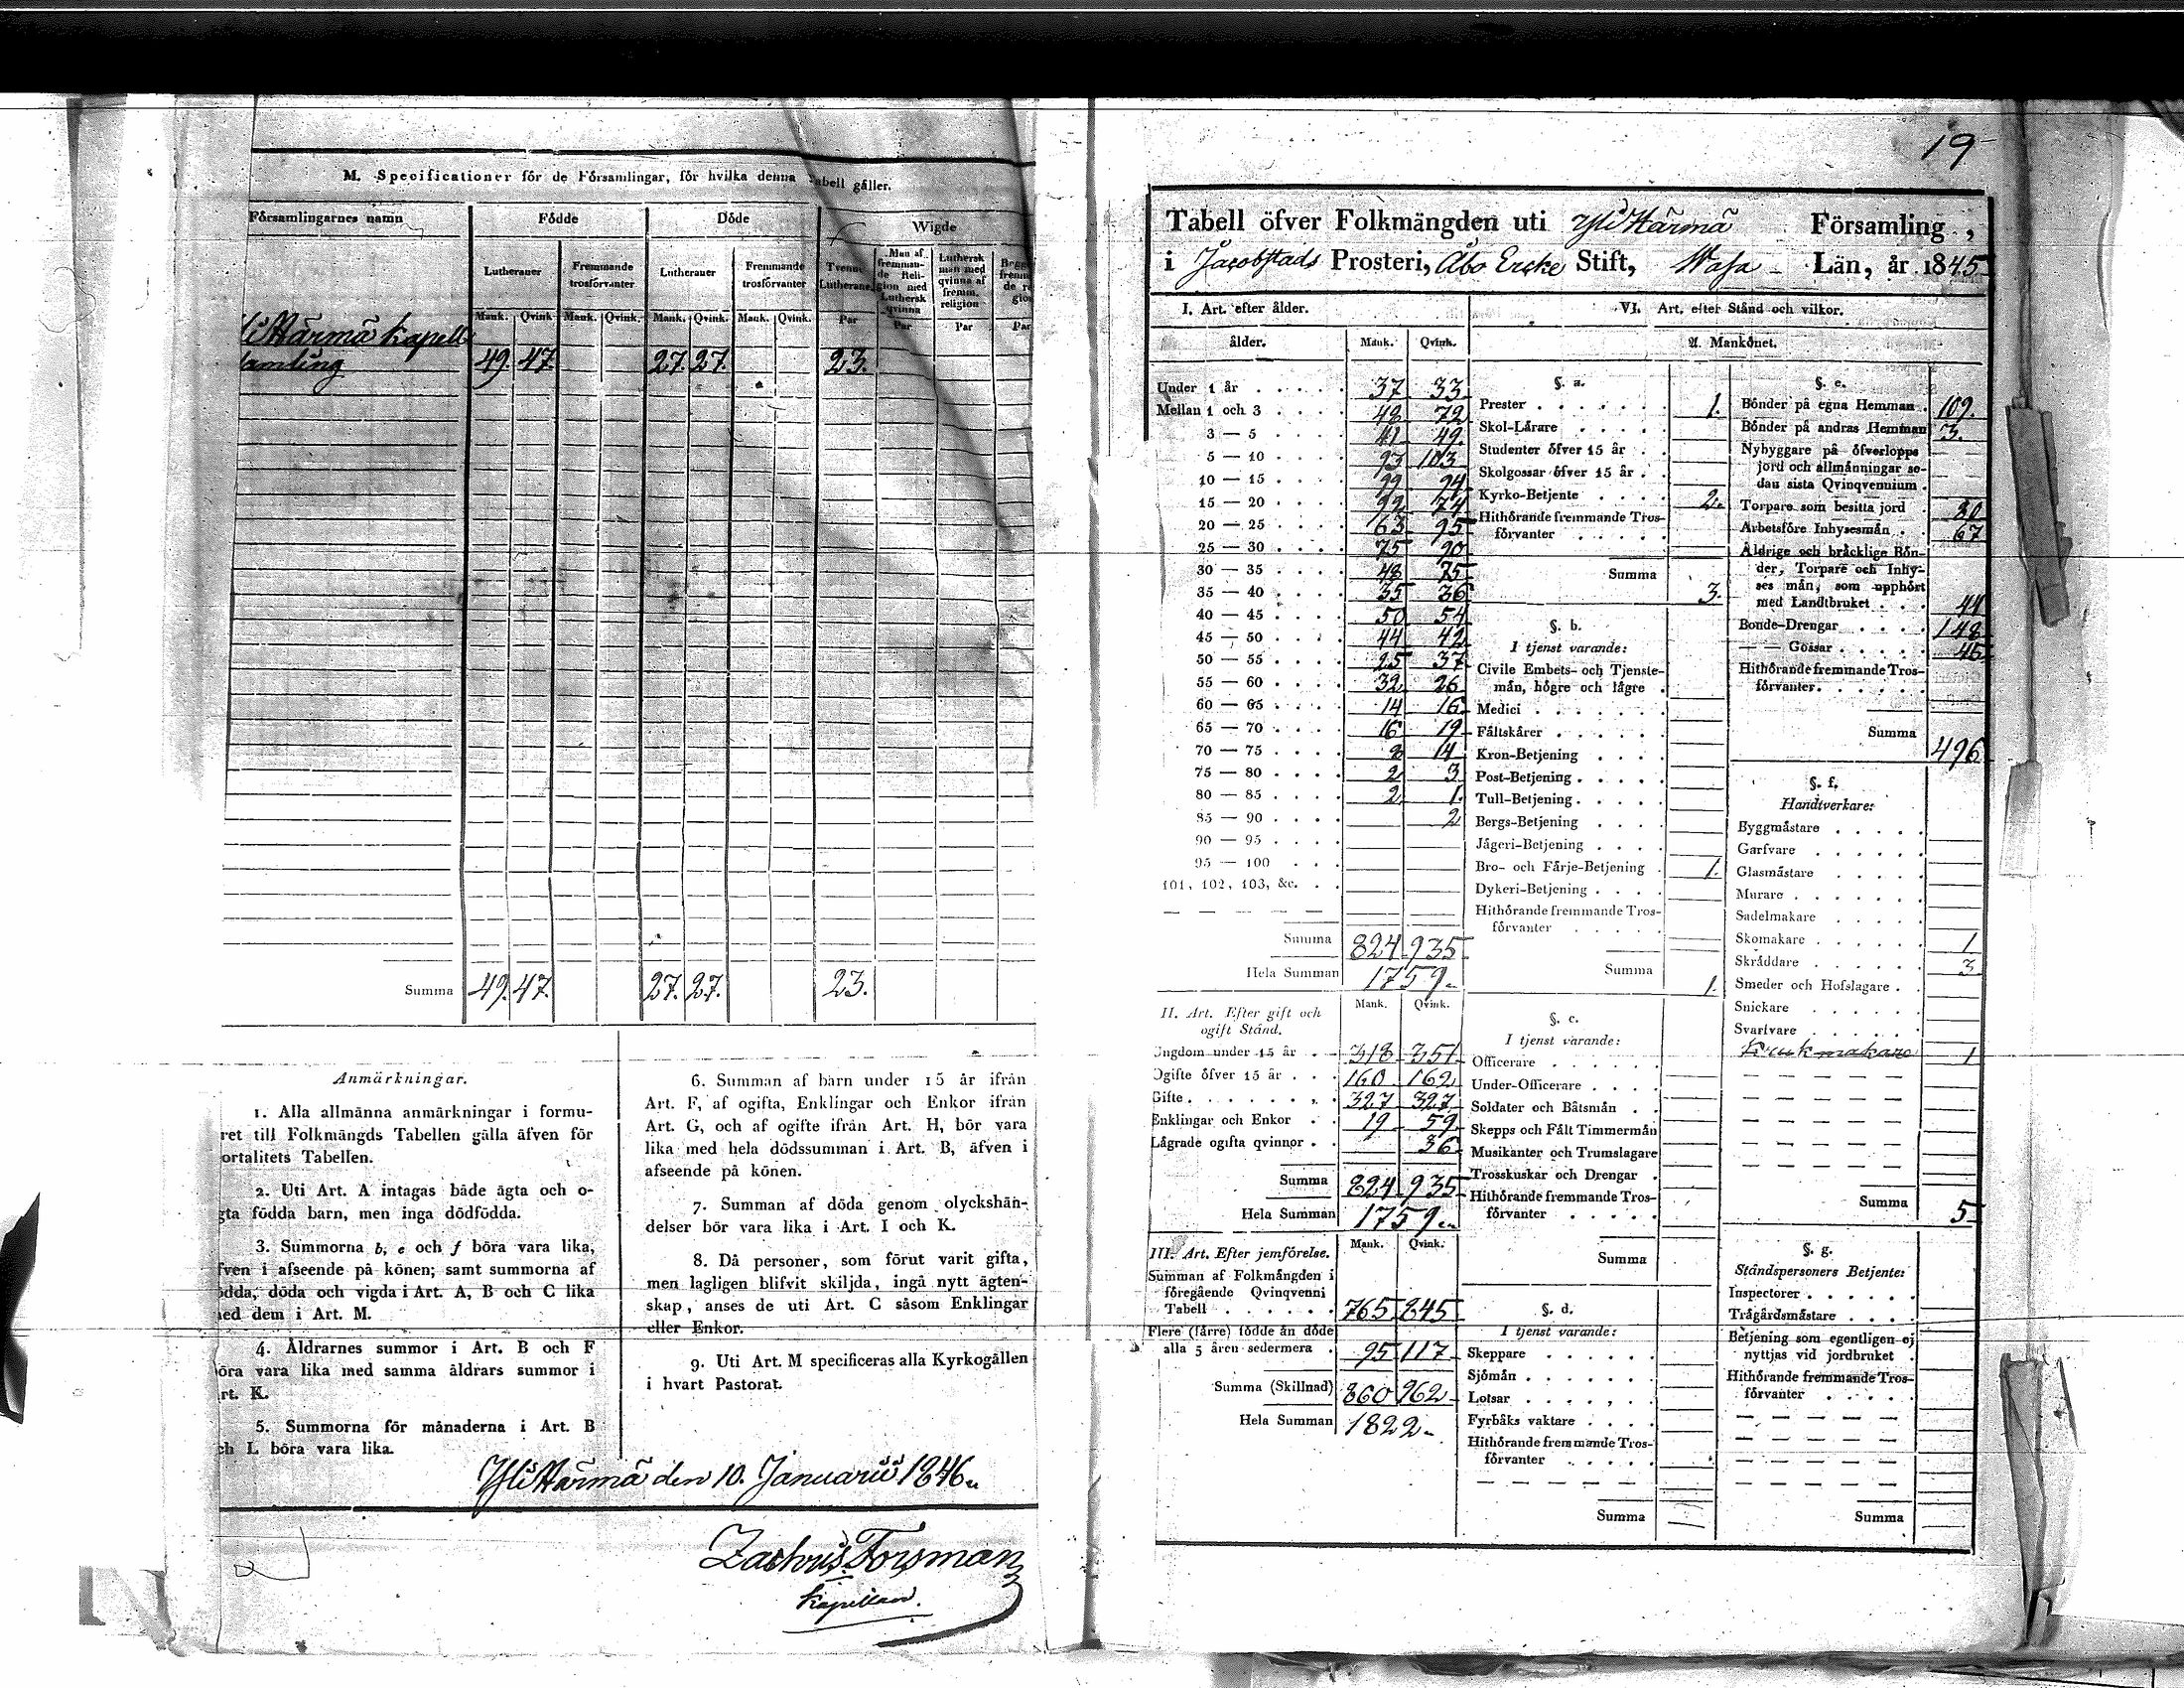 M. Specificationer för de Församlingar, för hvilka denna Tabell gäller.
Församlingarnes namn Födde Döde Wigde
Lutheraner Fremmande trosförvanter Lutheraner Fremmande trosförvanter Trenne Lutheraner Man af fremmande Religion med Luthersk qvinna Luthersk man med qvinna af fremm. religion
Mank. Qvink Mank. Qvink. Mank. Qvink. Mank. Qvink. Par Par Par Par
li Härmä Kapell
samling 49. 47. 27. 27. 23.
Summa 49. 47. 27. 27. 23.
Anmärkningar.
1. Alla allmänna anmärkningar i formu-
ret till Folkmängds Tabellen gälla äfven för
ortalitets Tabellen.
2. Uti Art. A intagas både ägta och o-
gta födda barn, men inga dödfödda.
3. Summorna b, e och f böra vara lika,
fven i afseende på könen; samt summorna af
ödda, döda och vigda i Art. A, B och C lika
med dem i Art. M.
4. Åldrarnes summor i Art. B och F
öra vara lika med samma åldrars summor i
rt. K.
5. Summorna för månaderna i Art. B
ch L böra vara lika.
6. Summan af barn under 15 år ifrån
Art. F, af ogifta, Enklingar och Enkor ifrån
Art. G, och af ogifte ifrån Art. H, bör vara
lika med hela dödssumman i Art. B, äfven i
afseende på könen.
7. Summan af döda genom olyckshän-
delser bör vara lika i Art. I och K.
8. Då personer, som förut varit gifta,
men lagligen blifvit skiljda, ingå nytt ägten-
skap, anses de uti Art. C såsom Enklingar
eller Enkor.
9. Uti Art. M specificeras alla Kyrkogällen
i hvart Pastorat.
Yli Härmä den 10. Januarii 1846.
Zachris Forsman
Kapellan.
19
Tabell öfver Folkmängden uti Yli Härmä Församling,
i Jacobstads Prosteri, Åbo Erche Stift, Wasa Län, år 1845
I. Art. efter ålder.
ålder. Mank. Qvink.
Under 1 år 37 33
Mellan 1 och 3 48 72
3 — 5 41 49
5 — 10 93 103
10 — 15 99 94
15 — 20 92 74
20 — 25 63 95
25 — 30 75 90
30 — 35 48 75
35 — 40 35 36
40 — 45 50 54
45 — 50 44 42
50 — 55 25 37
55 — 60 32 26
60 — 65 14 16
65 — 70 16 19
70 — 75 8 14
75 — 80 2 3
80 — 85 2 1.
85 — 90 2
90 — 95
95 — 100
101, 102, 103, &c.
Summa 824 935
Hela Summan 1759
II. Art. Efter gift och ogift Stånd. Mank. Qvink.
Ungdom under 15 år 318 351
Ogifte öfver 15 år 160 162
Gifte 327 327
Enklingar och Enkor 19 59
Lägrade ogifta qvinnor 36
Summa 824 935
Hela Summan 1759
III. Art. Efter jemförelse. Mank. Qvink.
Summan af Folkmängden i
föregående Qvinqvenni
Tabell 765 845
Flere (färre) födde än döde
alla 5 åren sedermera 95 117
Summa (Skillnad) 860 962
Hela Summan 1822
VI. Art. efter Stånd och vilkor.
A. Mankönet.
§. a.
Prester 1.
Skol-Lärare
Studenter öfver 15 år
Skolgossar öfver 15 år
Kyrko-Betjente 2.
Hithörande fremmande Tros-
förvanter
Summa 3.
§. b.
I tjenst varande:
Civile Embets- och Tjenste-
män, högre och lägre
Medici
Fältskärer
Kron-Betjening
Post-Betjening
Tull-Betjening
Bergs-Betjening
Jägeri-Betjening
Bro- och Färje-Betjening 1.
Dykeri-Betjening
Hithörande fremmande Tros-
förvanter
Summa 1.
§. c.
I tjenst varande:
Officerare
Under-Officerare
Soldater och Båtsmän
Skepps och Fält Timmermän
Musikanter och Trumslagare
Trosskuskar och Drengar
Hithörande fremmande Tros-
förvanter
Summa
§. d.
I tjenst varande:
Skeppare
Sjömän
Lotsar
Fyrbåks vaktare
Hithörande fremmande Tros-
förvanter
Summa
§. e.
Bönder på egna Hemman 109.
Bönder på andras Hemman 3.
Nybyggare på öfverlopps
jord och allmänningar se-
dan sista Qvinqvennium
Torpare som besitta jord 80
Arbetsföre Inhysesmän 67
Åldrige och bräcklige Bön-
der, Torpare och Inhy-
ses män, som upphört
med Landtbruket 44
Bonde-Drengar 148
— — Gossar 45
Hithörande fremmande Tros-
förvanter
Summa 496
§. f.
Handtverkare:
Byggmästare
Garfvare
Glasmästare
Murare
Sadelmakare
Skomakare 1
Skräddare 3
Smeder och Hofslagare
Snickare
Svarfvare
Krukmakare 1
Summa 5
§. g.
Ståndspersoners Betjente:
Inspectorer
Trägårdsmästare
Betjening som egentligen ej
nyttjas vid jordbruket
Hithörande fremmande Tros-
förvanter
Summa